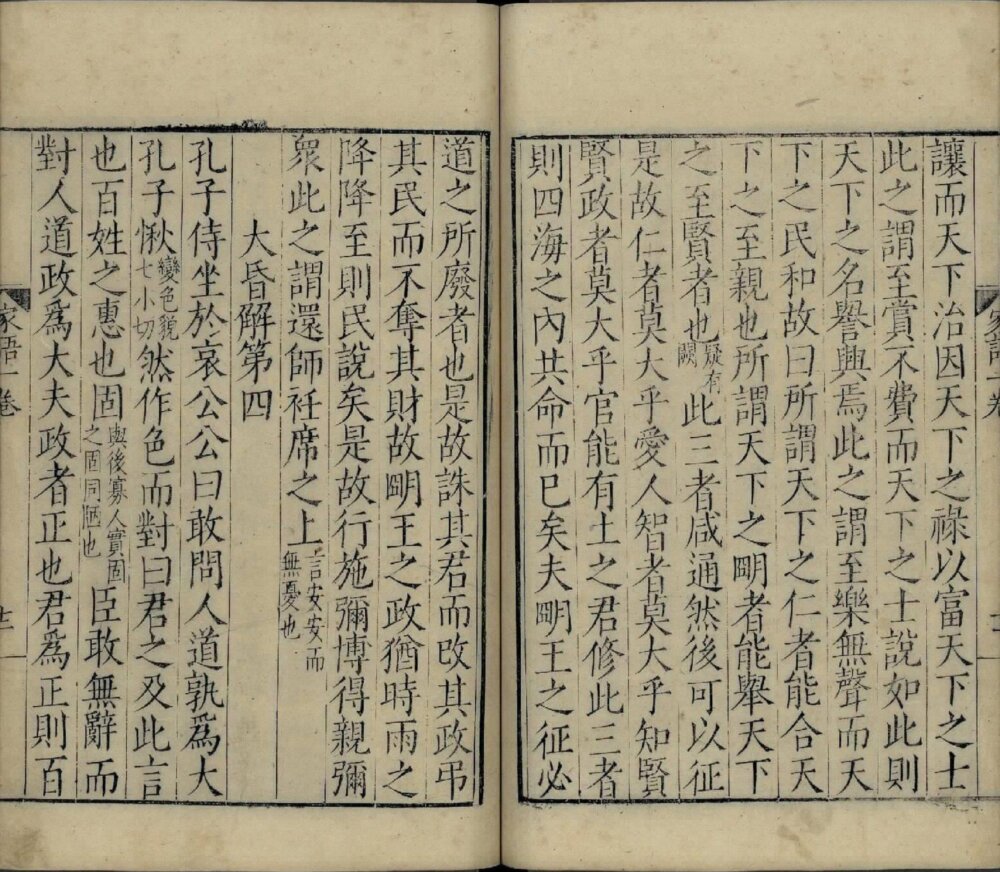 讓而天下治因天下之祿以富天下之士
此之謂至賞不費而天下之士說如此則
天下之名譽興焉此之謂至樂無聲而天
下之民和故曰所謂天下之仁者能合天
下之至親也所謂天下之明者能舉天下
之至賢者也疑有闕此三者咸通然後可以征
是故仁者莫大乎愛人智者莫大乎知賢
賢政者莫大乎官能有土之君修此三者
則四海之內共命而已矣夫明王之征必
道之所廢者也是故誅其君而改其政弔
其民而不奪其財故明王之政猶時雨之
降降至則民說矣是故行施彌博得親彌
眾此之謂還師衽席之上言安安而無憂也
大昏解第四
孔子侍坐於哀公公曰敢問人道孰為大
孔子愀變色貌七小切然作色而對曰君之及此言
也百姓之惠也固與後寡人實固之固同陋也臣敢無辭而
對人道政為大夫政者正也君為正則百
家語一卷